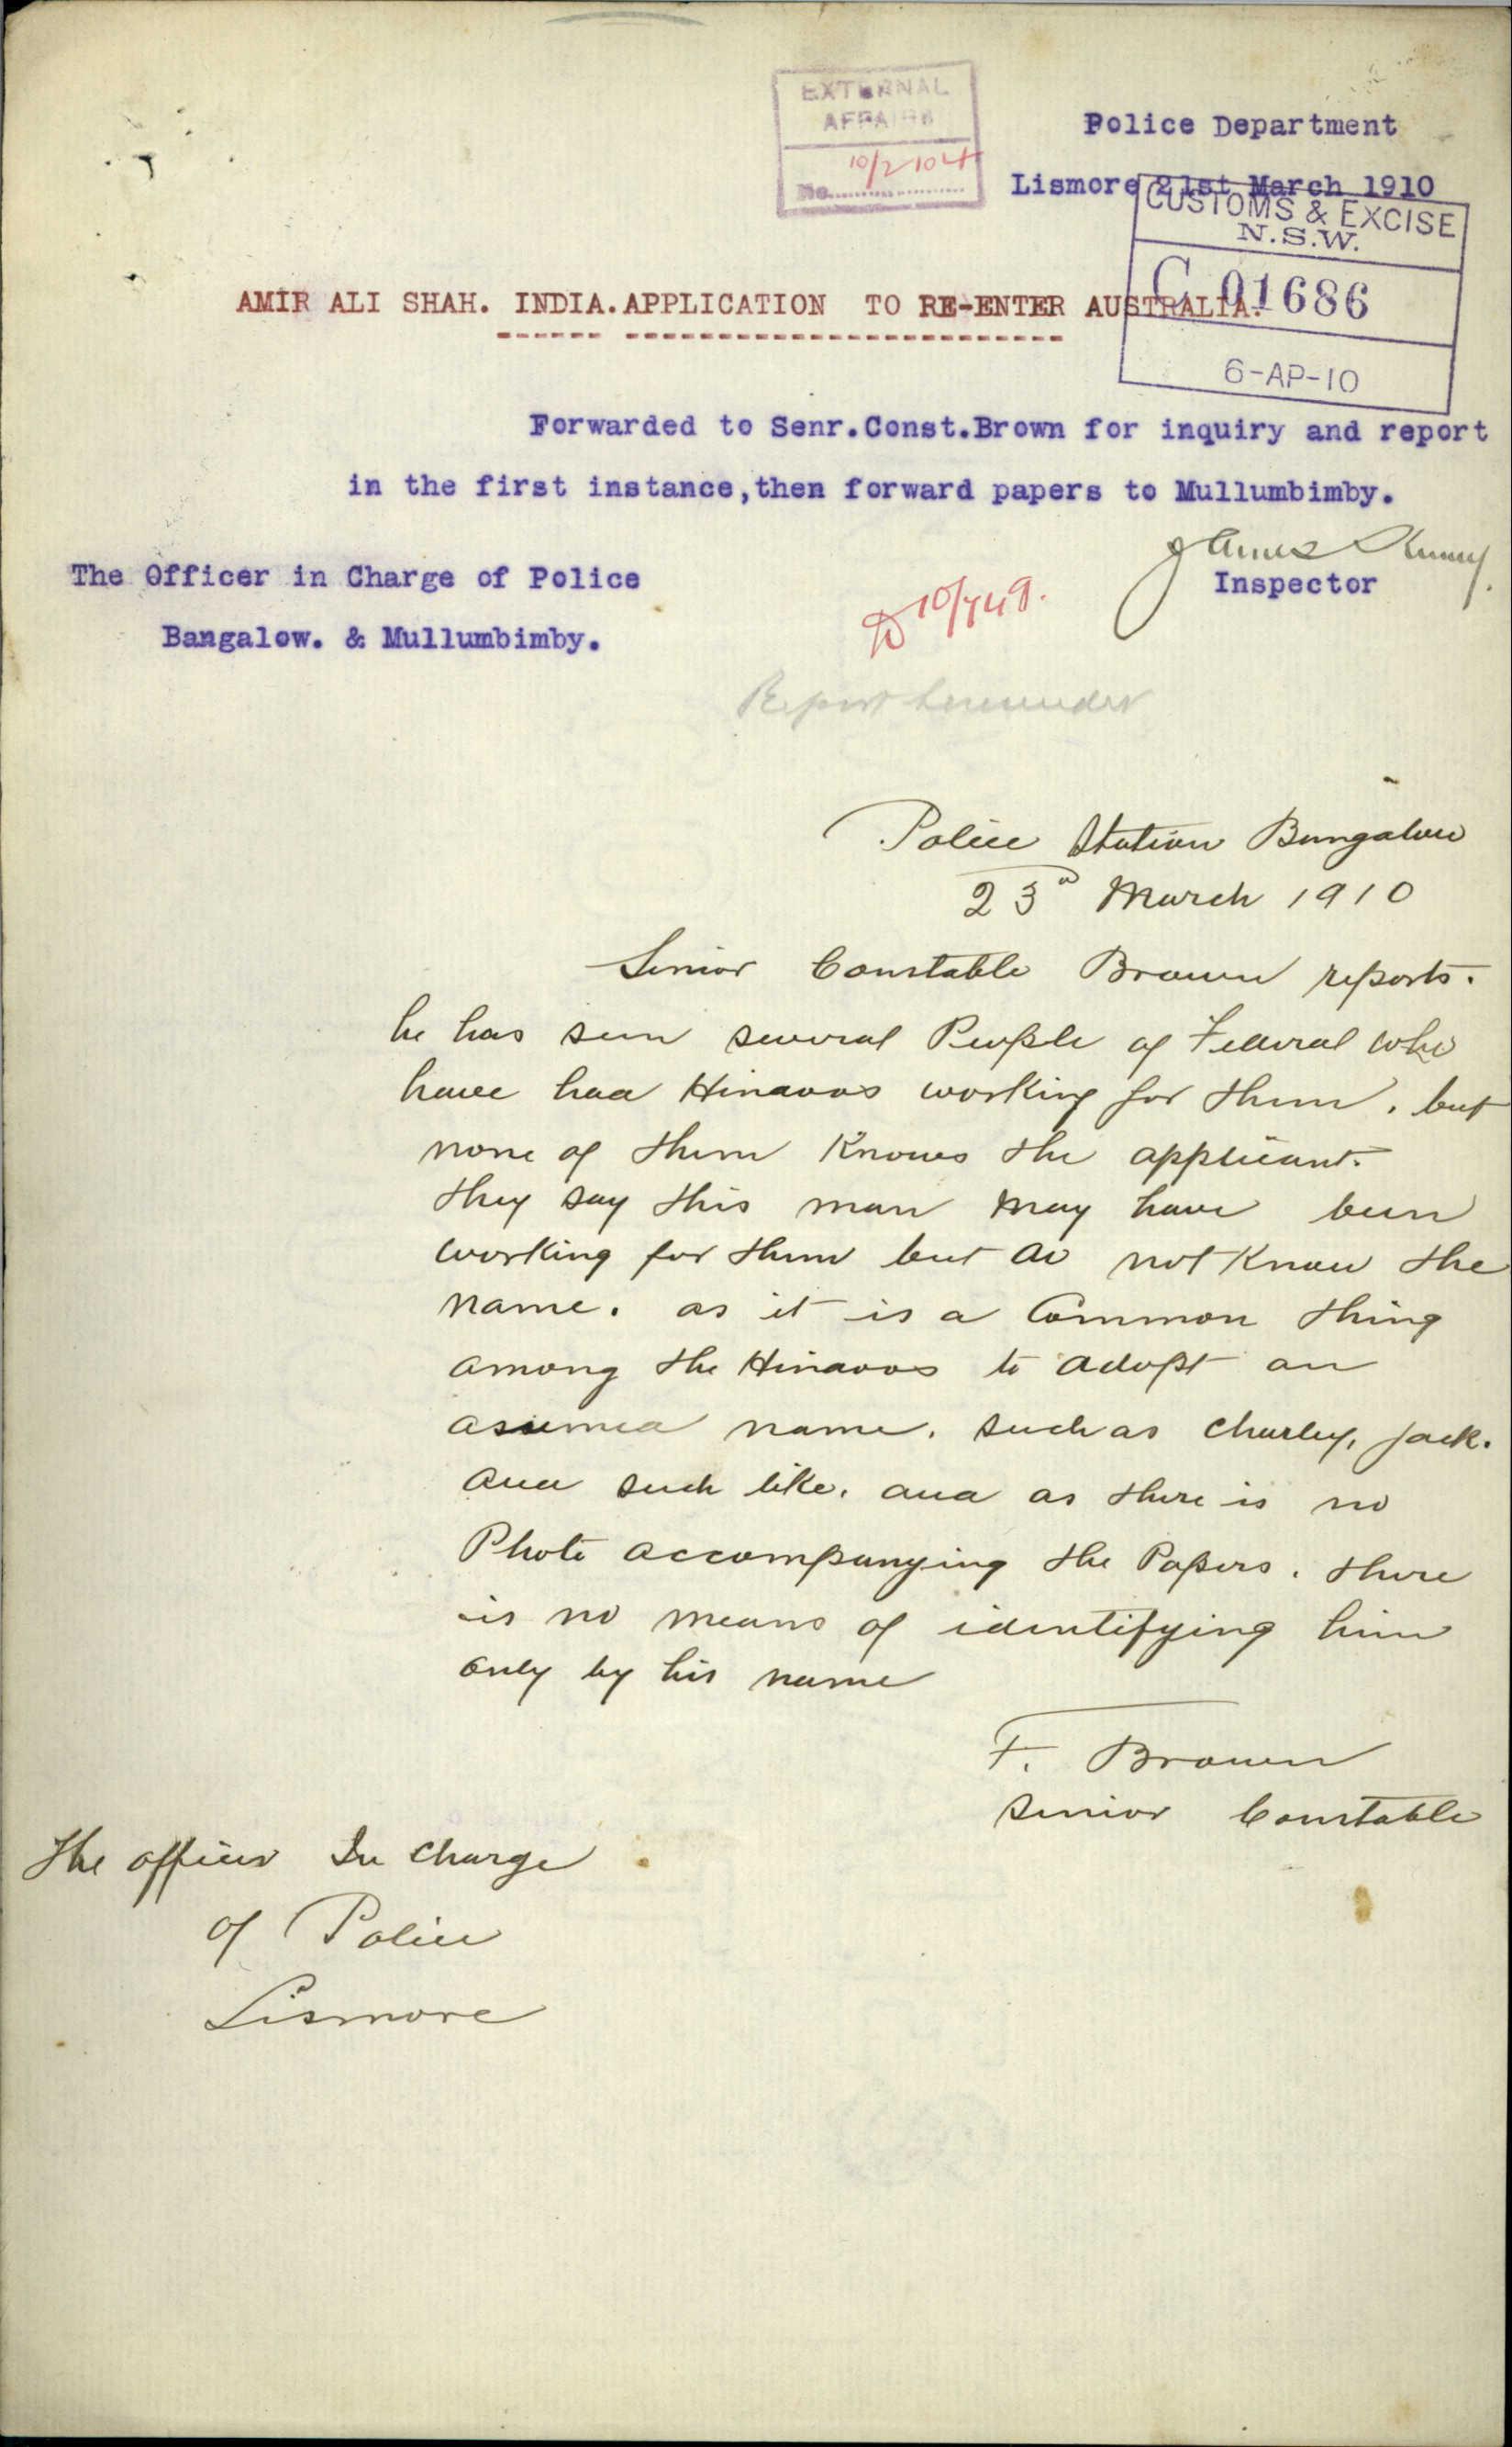 EXTERNAL
AFFAIRS
No. 10/2104
Police Department
Lismore 21st March 1910
CUSTOMS & EXCISE
N.S.W.
C 01686
6-AP-10
AMIR ALI SHAH. INDIA. APPLICATION TO RE-ENTER AUSTRALIA.
Forwarded to Senr.Const.Brown for inquiry and report
in the first instance,then forward papers to Mullumbimby.
James
Inspector
The Officer in Charge of Police
Bangalow. & Mullumbimby.
10/749.
Report hereunder
Police Station Bangalow
23d March 1910
Senior Constable Brown reports.
he has seen several People of Federal who
have had Hindoos working for them, but
none of them Knows the applicant.
they say this man may have been
working for them but do not Know the
name. as it is a Common thing
among the Hindoos to adopt an
assumed name. such as Charley, Jack.
and such like. and as there is no
Photo accompanying the Papers. there
is no means of identifying him
only by his name
F. Brown
Senior Constable
The officer In Charge
of Police
Lismore